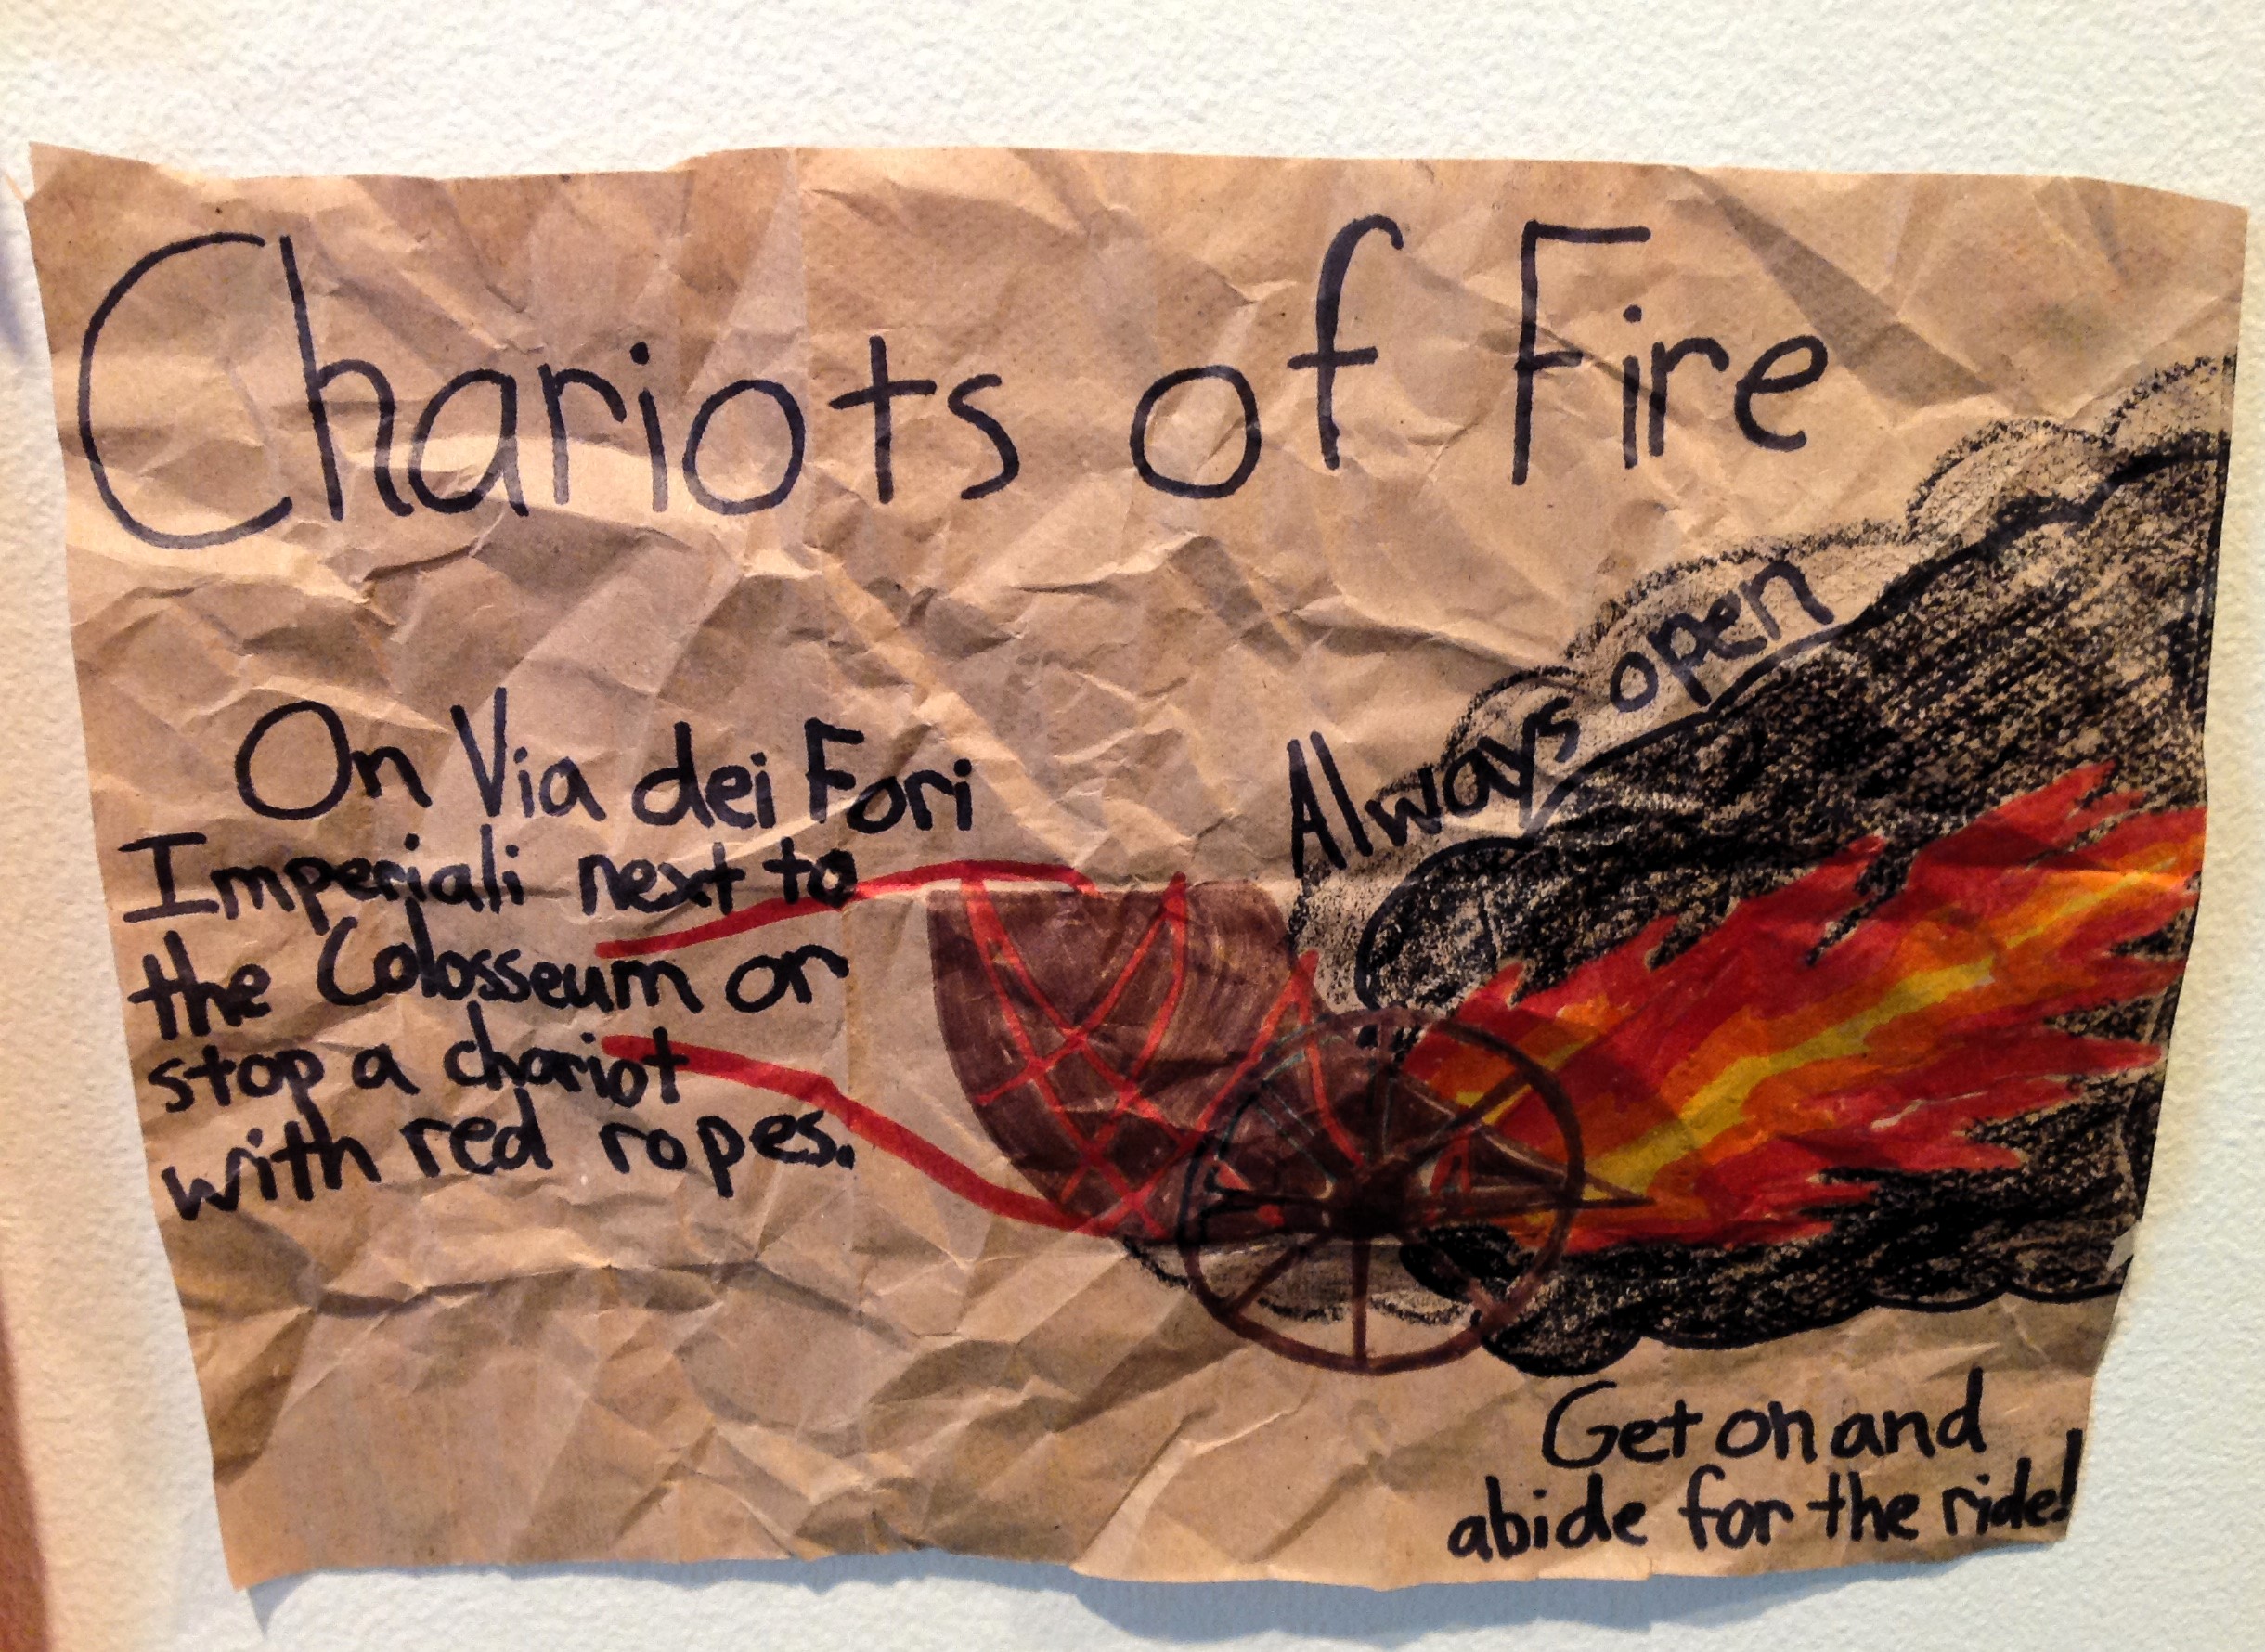 Chariots of Fire
Always open
On Via dei Fori
Imperiali next to
the Colosseum or
stop a chariot
with red ropes.
Get on and
abide for the ride!